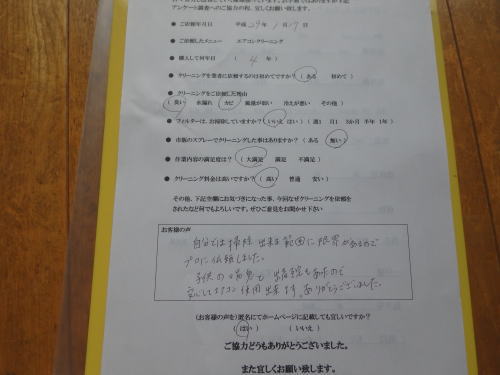 アンケート調査へのご協力の程、宜しくお願い致します。
● ご依頼年月日 平成 29年 1月 17日
● ご依頼したメニュー エアコンクリーニング
● 購入して何年目 ( 4 年)
● クリーニングを業者に依頼するのは初めてですか? ( ある 初めて )
● クリーニングをご依頼した理由
( 臭い 水漏れ カビ 風量が弱い 冷えが悪い その他 )
● フィルターは、お掃除していますか? ( いいえ はい ) ( 週1 月1 3か月 半年 1年 )
● 市販のスプレーでクリーニングした事はありますか? ( ある 無い )
● 作業内容の満足度は? ( 大満足 満足 不満足 )
● クリーニング料金は高いですか? ( 高い 普通 安い )
その他、下記空欄にお気づきになった事、今回なぜクリーニングを依頼を
されたなど何でもよろしいです。ぜひご意見をお聞かせ下さい
お客様の声
自分では掃除出来る範囲に限界があるので
プロに依頼しました。
子供の喘息も
エアコン使用出来ます。ありがとうございました。
(お客様の声)匿名にてホームページに記載しても宜しいですか?
( はい ) ( いいえ )
ご協力どうもありがとうございました。
また宜しくお願い致します。